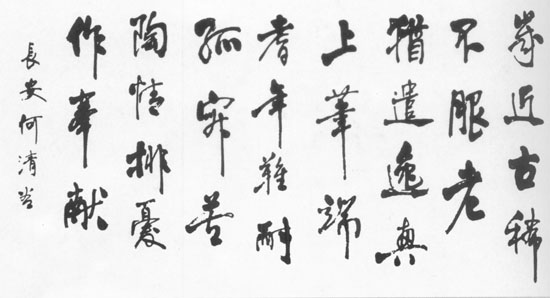 歲近古稀
不服老
猶遣逸興
上筆端
耆年難耐
孤寂苦
陶情排憂
作奉献
長安何清谷